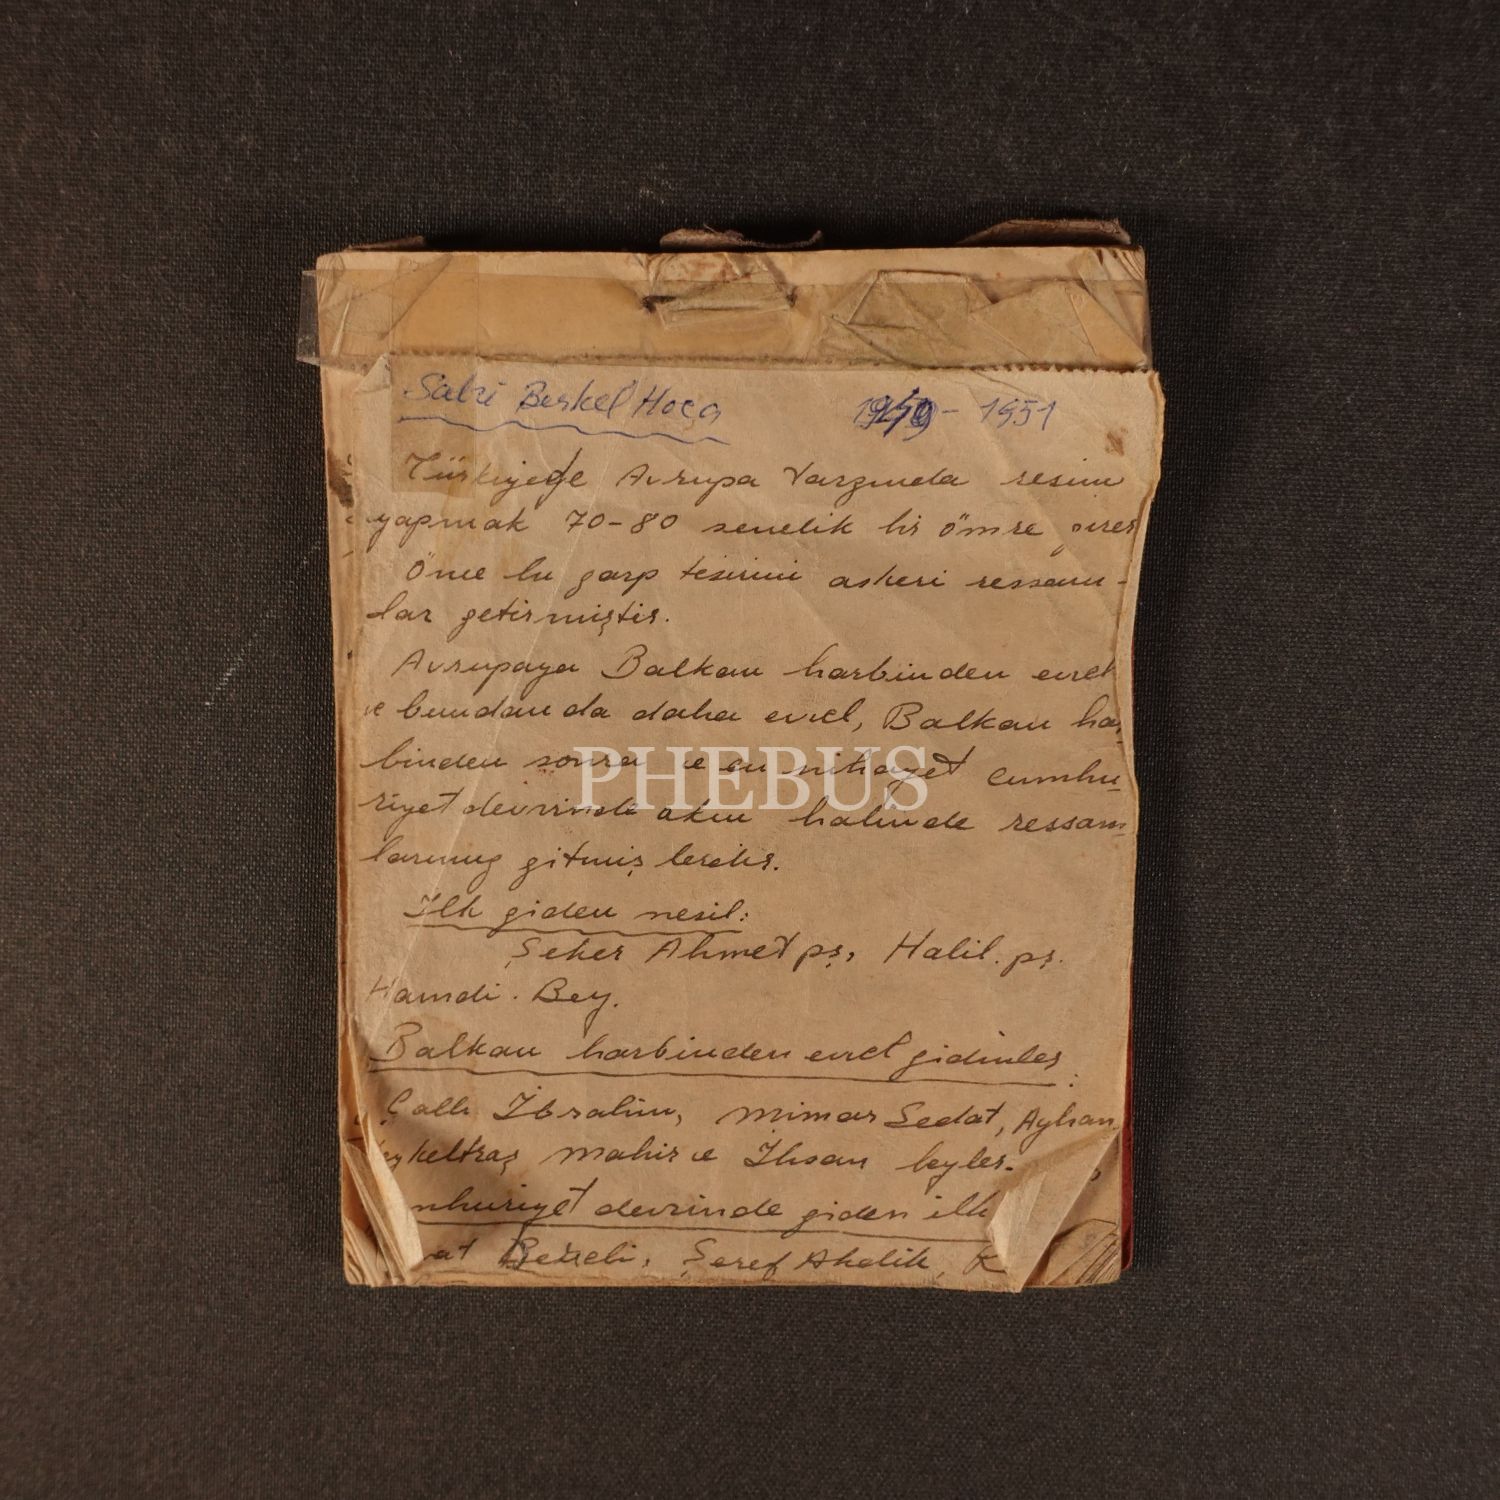 Sabri Berkel Hoca 1949 - 1951
Türkiyede Avrupa tarzında resim
yapmak 70-80 senelik bir ömre girer
Önce bu garp tesirini askeri ressam-
lar getirmiştir.
Avrupaya Balkan harbinden evvel
ve bundan da daha evvel, Balkan har-
binden sonra ve en nihayet cumhu-
riyet devrinde akın halinde ressam-
larımız gitmişlerdir.
İlk giden nesil:
Şeker Ahmet pş, Halil. pş.
Hamdi. Bey.
Balkan harbinden evvel gidenler:
Çallı İbrahim, Mimar Sedat, Ayhan
heykeltraş Mahir ve İhsan beyler.
mhuriyet devrinde giden ilk
at Şeref Akdik, K
PHEBUS